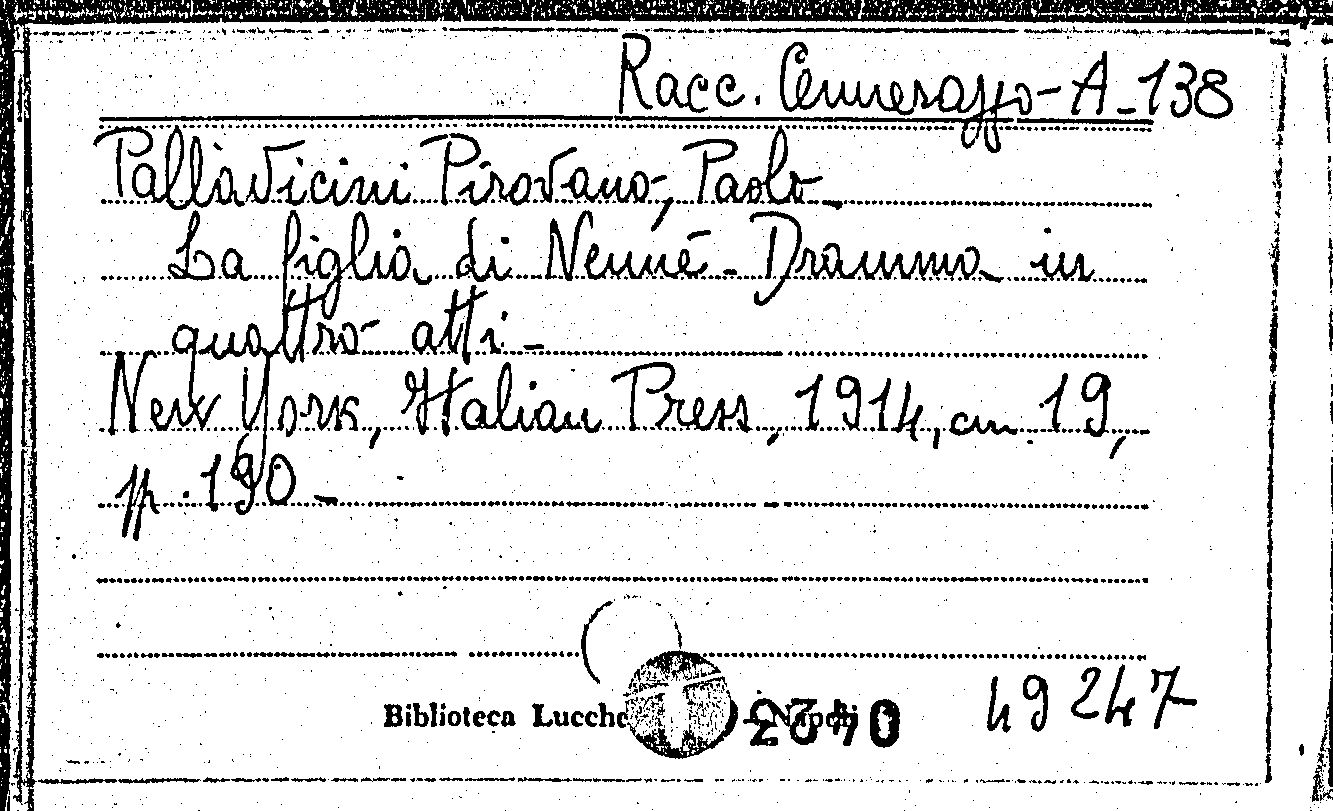 Racc. Cennerazzo-A-138
Pallavicini Pirovano, Paolo-
La figlia di Nennè - Dramma in
quattro atti -
New York, Italian Press, 1914, cm. 19,
pp. 190 -
Biblioteca Lucche - Napoli
49247